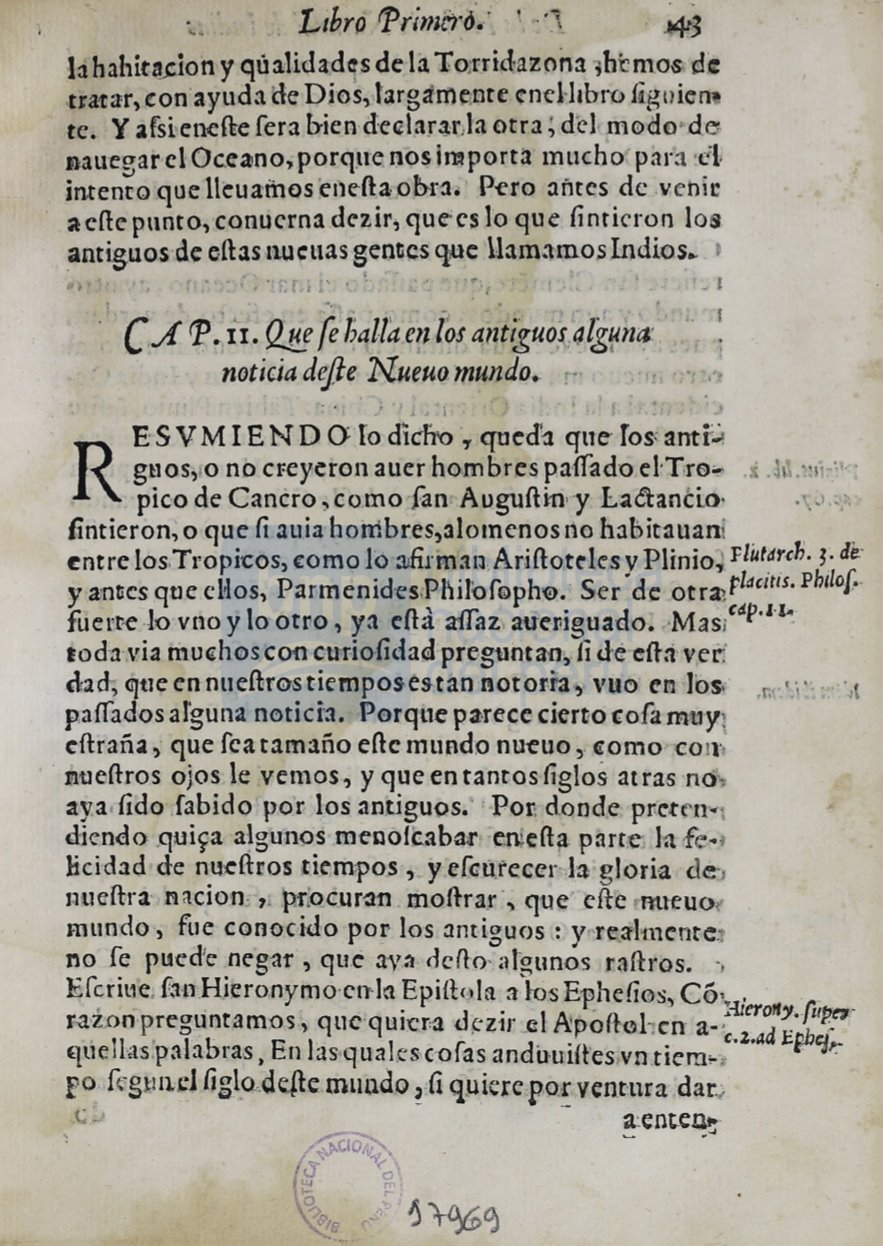 Libro Primero. 43
la hahitacion y qualidades de la Torridazona, hemos de
tratar, con ayuda de Dios, largamente enel libro ſiguien-
te. Y aſsi eneſte ſera bien declarar la otra, del modo de
nauegar el Oceano, porque nos importa mucho para el
intento que lleuamos eneſta obra. Pero antes de venir
a eſte punto, conuerna dezir, que es lo que ſintieron los
antiguos de eſtas nueuas gentes que llamamos Indios.
CAP. 11. Que ſe halla en los antiguos alguna
noticia deſte Nueuo mundo.
RESVMIENDO lo dicho, queda que los anti-
guos, o no creyeron auer hombres paſſado el Tro-
pico de Cancro, como ſan Auguſtin y Lactancio
ſintieron, o que ſi auia hombres, alomenos no habitauan
entre los Tropicos, como lo afirman Ariſtoteles y Plinio,
y antes que ellos, Parmenides Philoſopho. Ser de otra
ſuerte lo vno y lo otro, ya eſtà aſſaz aueriguado. Mas
toda via muchos con curioſidad preguntan, ſi de eſta ver
dad, que en nueſtros tiempos es tan notoria, vuo en los
paſſados alguna noticia. Porque parece cierto coſa muy
eſtraña, que ſea tamaño eſte mundo nueuo, como con
nueſtros ojos le vemos, y que en tantos ſiglos atras no
aya ſido ſabido por los antiguos. Por donde preten-
diendo quiça algunos menoſcabar en eſta parte la fe-
licidad de nueſtros tiempos, y eſcurecer la gloria de
nueſtra nacion, procuran moſtrar, que eſte nueuo
mundo, fue conocido por los antiguos: y realmente
no ſe puede negar, que aya deſto algunos raſtros.
Eſcriue ſan Hieronymo en la Epiſtola a los Epheſios, Cõ
razon preguntamos, que quiera dezir el Apoſtol en a-
quellas palabras, En las quales coſas anduuiſtes vn tiem-
po ſegun el ſiglo deſte mundo, ſi quiere por ventura dar
a enten-
Plutarch. 3. de
placitis. Philoſ.
cap. 11.
Hierony. ſuper
c. 2. ad Epheſ.
BIBLIOTECA NACIONAL DEL PERU
17969